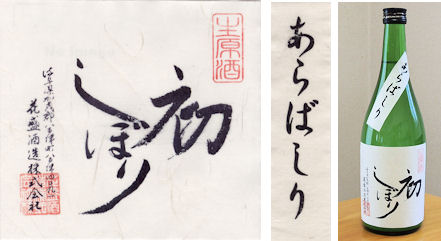 生原酒
初
しぼり
花盛酒造株式会社
あらばしり
あらばしり
初
しぼり